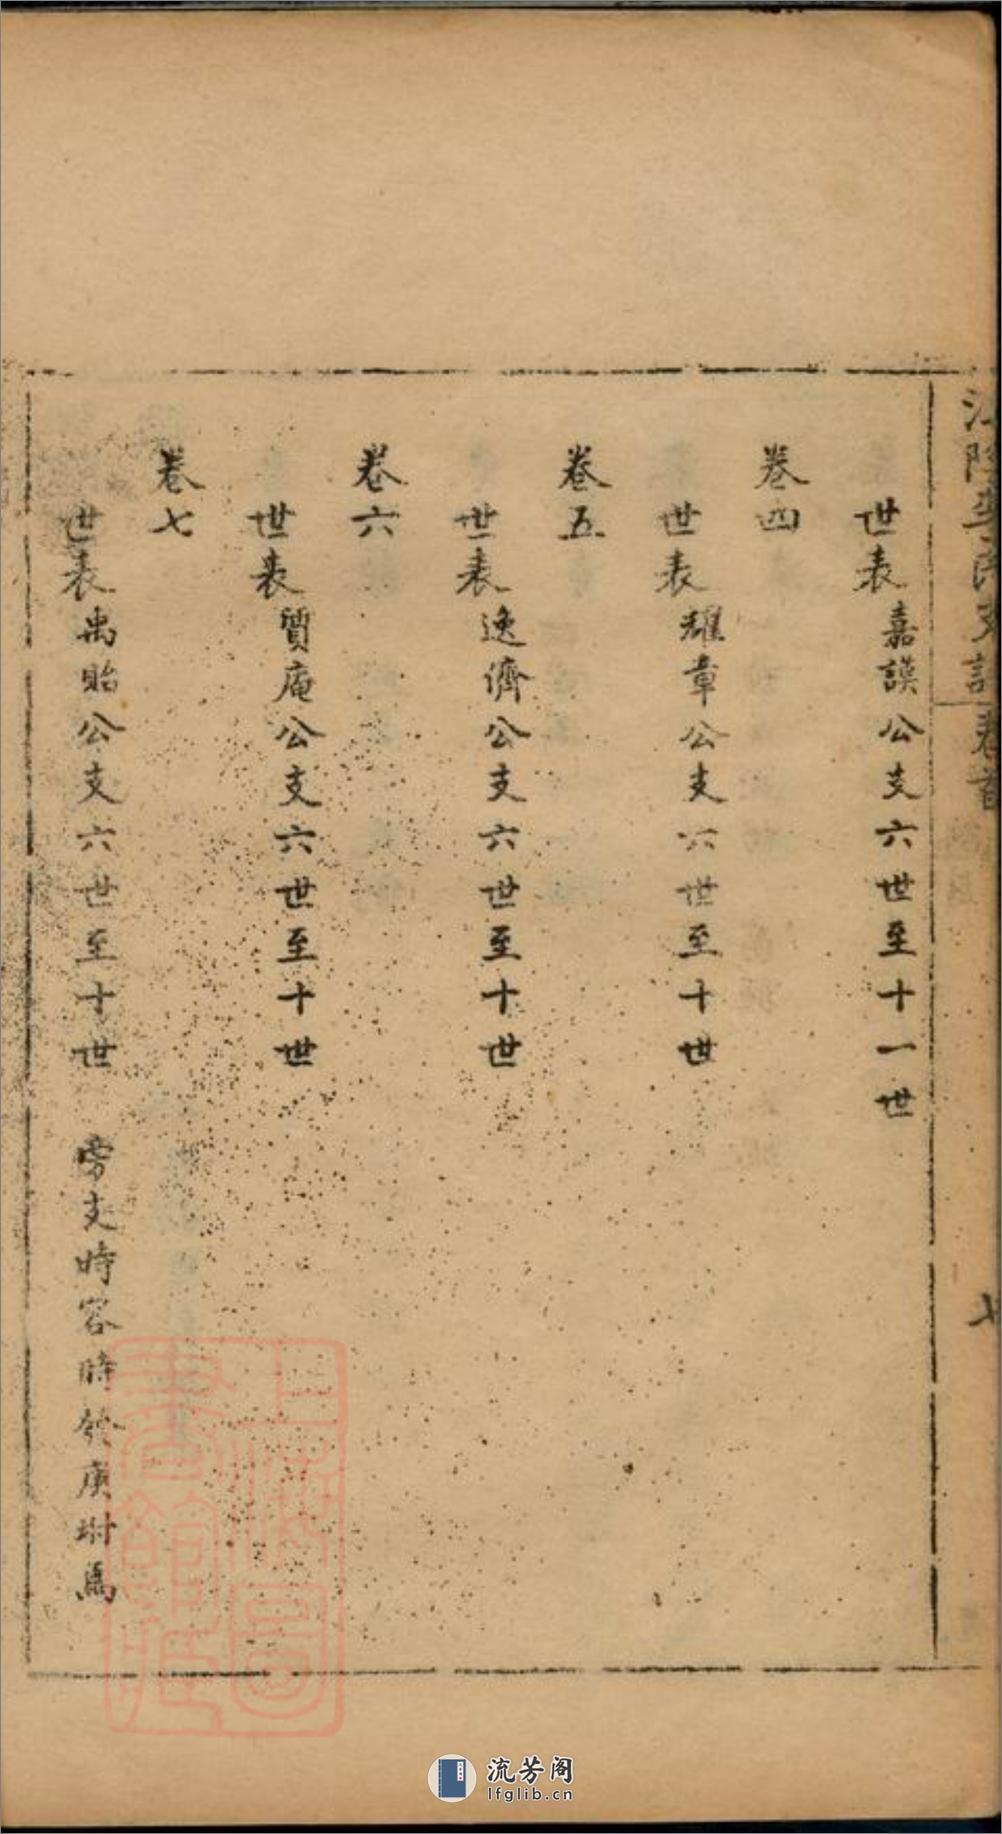 世表嘉謨公支六世至十一世
卷四
世表耀章公支六世至十世
卷五
世表逸儕公支六世至十世
卷六
世表質庵公支六世至十世
卷七
世表禹貽公支六世至十世 旁支時容時發庚坿焉
卷首
七
上海圖書館藏
流芳阁
lfglib.cn